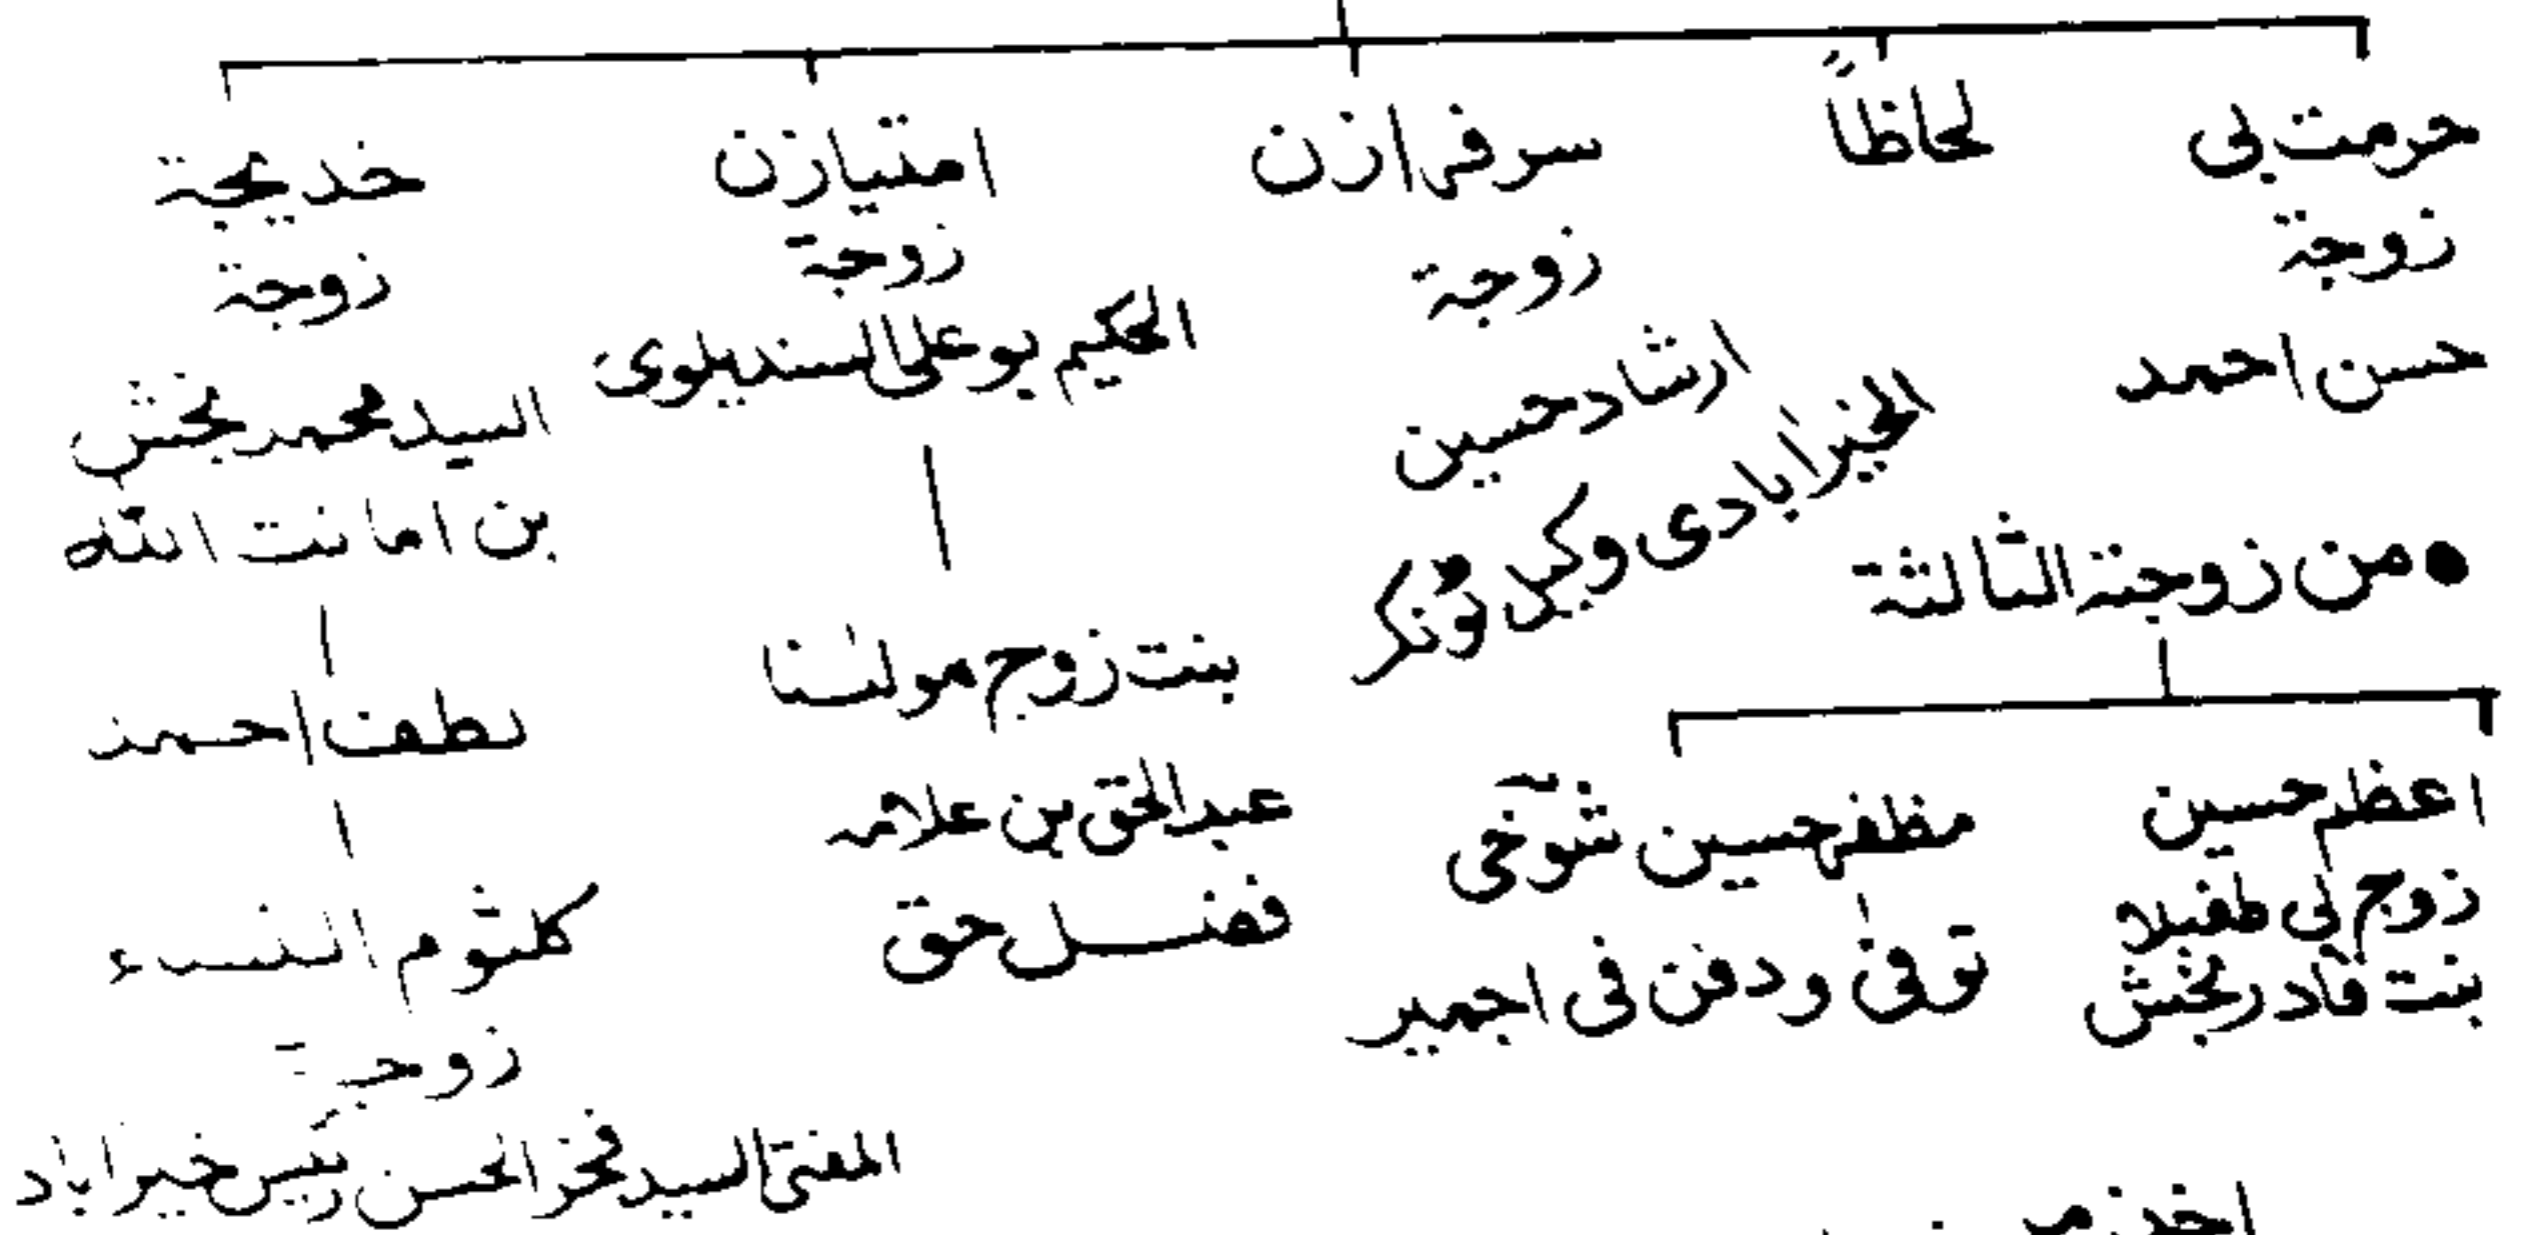 حرمت بی
زوجة
حسن احمد
لحاظاً
سرفرازن
زوجة
ارشاد حسین
الخیرابادی وکیل ٹونکر
امتیازن
زوجة
الحکیم بو علی السندیلوی
بنت زوج مولٰنا
عبدالحق بن علامه
فضل حق
خدیجة
زوجة
السید محمد بخش
بن امانت الله
لطف احمد
کلثوم النساء
زوجة
المفتی السید فخر الحسن رئیس خیراباد
● من زوجة الثالثة
اعظم حسین
زوج بی طفیلا
بنت قادر بخش
مظفر حسین شوخی
توفی ودفن فی اجمیر
اخذ من